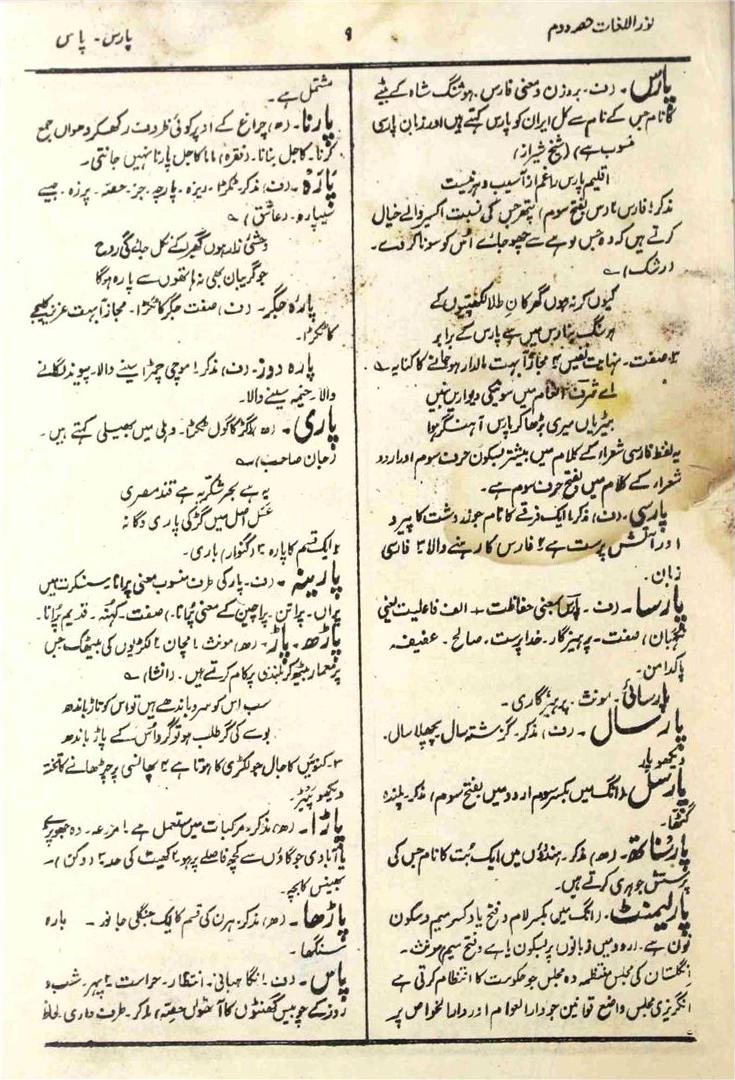 نور اللغات حصہ دوم
۹
پارس - پاس
پارس - (ف - بروزن و معنی فارس - ہوشنگ شاہ کے بیٹے
کا نام جس کے نام سے کل ایران کو پارس کہتے ہیں اور زبان پارسی
منسوب ہے) (شیخ شیراز)
اقلیم پارس را غم از آسیب دہر نیست
مذکر ۱ فارس (اردو بفتح سوم) پتھر جس کی نسبت اکسیر والے خیال
کرتے ہیں کہ وہ جس لوہے سے چھو جائے اُس کو سونا کر دے -
(رشک) ؎
کیوں کر نہ ہوں گھر کانِ طلا لکھپتیوں کے
ہر سنگ بنارس میں ہے پارس کے برابر
۳ - صفت - نہایت نفیس ۴ مجازاً بہت مالدار ہو جانے کا کنایہ ؎
اے شرف انعام میں سونے کی دیواریں بنیں
بیڑیاں میری بڑھا کر پارس آہنگر ہوا
یہ لفظ فارسی شعراء کے کلام میں بیشتر بسکون حرف سوم اور اردو
شعراء کے کلام میں بفتح حرف سوم ہے -
پارسی - (ف) مذکر ۱ ایک فرقے کا نام جو زردشت کا پیرو
اور آتش پرست ہے ۲ فارس کا رہنے والا ۳ فارسی
زبان -
پارسا - (ف - پارس بمعنی حفاظت + الف فاعلیت یعنی
نگہبان) صفت - پرہیزگار - خدا پرست - صالح - عفیفہ
پاکدامن -
پارسائی - مونث - پرہیزگاری -
پار سال - (ف) مذکر - گزشتہ سال پچھلا سال -
دیکھو پار
پارسل - (انگ میں بکسر سوم اردو میں بفتح سوم) مذکر - پلندہ
گٹھا -
پارسناتھ - (ھ) مذکر - ہندوؤں میں ایک بُت کا نام جس کی
پرستش جوہری کرتے ہیں -
پارلیمنٹ - (انگ میں بکسر لام و فتح یا و کسر میم و سکون
نون ہے - اردو میں زبانوں پر بسکون یا و فتح میم) مونث -
انگلستان کی مجلس منتظمہ وہ مجلس جو حکومت کا انتظام کرتی ہے
انگریزی مجلس واضع قوانین جو دارالعوام اور دارالخواص پر
مشتمل ہے -
پارنا - (ھ) چراغ کے اوپر کوئی ظروف رکھ کر دھواں جمع
کرنا - کاجل بنانا - (فقرہ) ماما کاجل پارنا نہیں جانتی -
پارہ - (ف) مذکر - ٹکڑا - ریزہ - پارچہ - جز - حصہ - پرزہ - جیسے
سیپارہ - (عاشق) ؎
وحشی زار ہوں گھبرا کے نکل جائے گی روح
جو گریبان بھی نہ ہاتھوں سے پارہ ہوگا
پارہ جگر - (ف) صفت جگر کا ٹکڑا - مجازاً بہت عزیز کلیجے
کا ٹکڑا -
پارہ دوز - (ف) مذکر ۱ موچی چمڑا سینے والا - پیوند لگانے
والا - خیمہ سینے والا -
پاری - (ھ) گڑ کا گول ٹکڑا - دہلی میں بھیلی کہتے ہیں -
(جان صاحب) ؎
یہ ہے بحر شکر یہ ہے قند مصری
عسل اصل میں گڑ کی پاری دگانہ
۲ ایک قسم کا پارہ ۳ (گنوار) باری -
پارینہ - (ف - پار کی طرف منسوب بمعنی پرانا - سنسکرت میں
پران - پراتن - پراچین کے معنی پُرانا -) صفت - کہنہ - قدیم - پُرانا -
پاڑھ - پاڑ - (ھ) مونث ۱ مچان ۲ لکڑیوں کی بیٹھک جس
پر معمار بیٹھ کر بلندی پر کام کرتے ہیں - (انشا) ؎
سب اس کو سرو باندھے ہیں تو اس کو تاڑ باندھ
بوسے کی گر طلب ہو تو گرد اُس کے پاڑ باندھ
۳ - کنوئیں کا جال جو لکڑی کا ہوتا ہے ۴ پھانسی پر چڑھانے کا تختہ
دیکھو پیڑ -
پاڑا - (ھ) مذکر - مرکبات میں مستعمل ہے ۱ مزرعہ - وہ جھونپڑے
یا آبادی جو گاؤں سے کچھ فاصلے پر ہو ۲ کھیت کی حد ۳ (دکن) -
بھینس کا بچہ -
پاڑھا - (ھ) مذکر - ہرن کی قسم کا ایک جنگلی جانور - بارہ
سنگھا -
پاس - (ف) ۱ نگاہبانی - انتظار - حراست ۲ پہر - شب و
روز کے چوبیس گھنٹوں کا آٹھواں حصہ) مذکر - طرف داری لحاظ